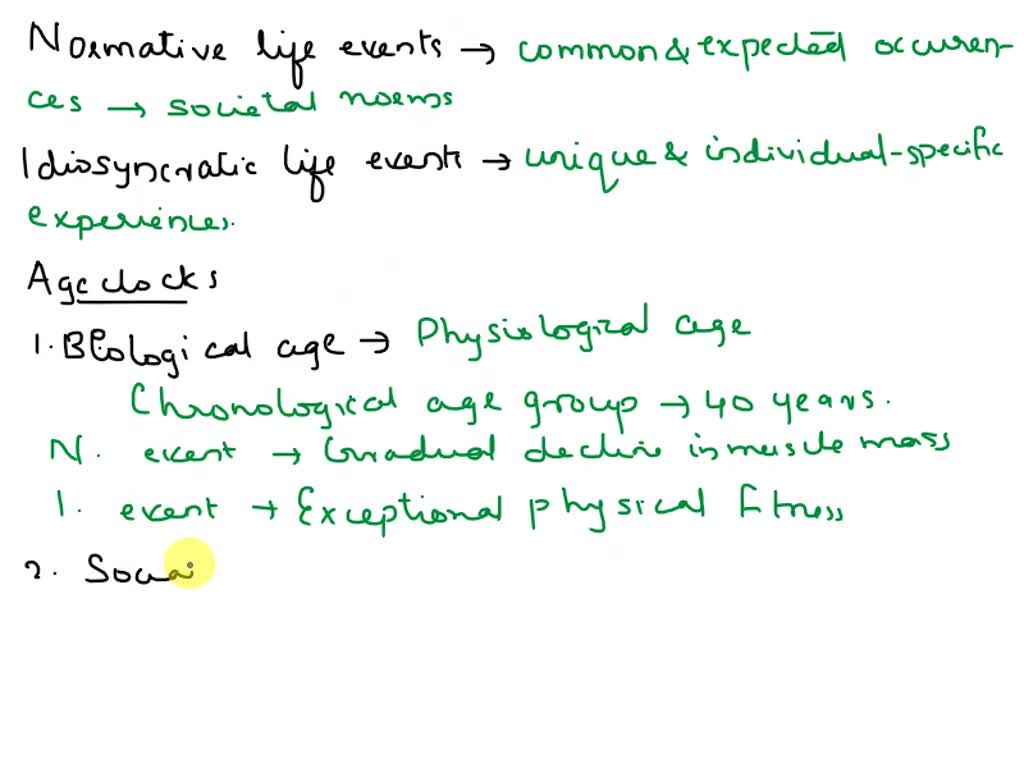 Normative life events → common & expected occuren-
ces → societal norms
Idiosyncratic life events → unique & individual-specific
experiences.
Age clocks
1. Biological age → Physiological age
Chronological age group → 40 years.
N. event → Gradual decline in muscle mass
I. event → Exceptional physical fitness
2. Soci